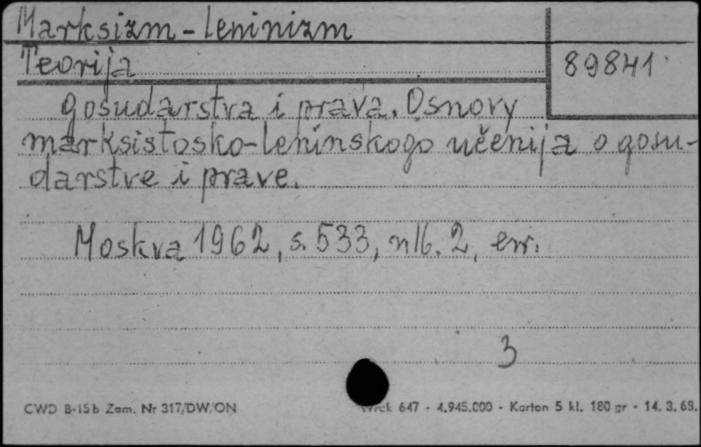 Marksizm-leninizm
Teorija 89841
gosudarstva i prava. Osnovy
marksistosko-leninskogo učenija o gosu-
darstve i prave.
Moskva 1962, s. 533, nlb. 2, err.
3
CWD B-15b Zam. Nr 317/DW/ON 647 - 4.945.000 - Karton 5 kl. 180 gr - 14. 3. 68.